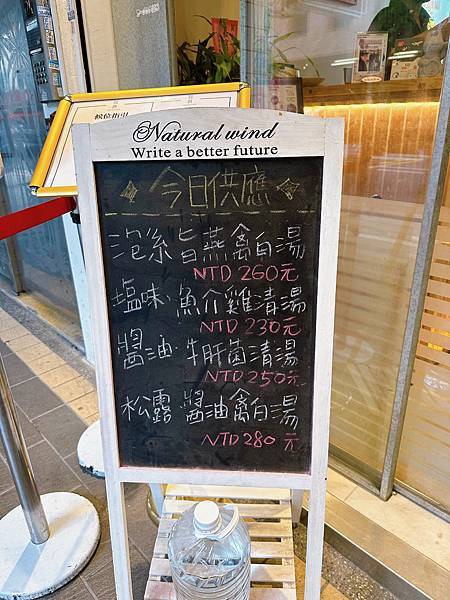 Natural wind
Write a better future
今日供應
泡系旨燕禽白湯
NTD 260元
塩味·魚介雞清湯
NTD 230元
醬油·牛肝菌清湯
NTD 250元
松露 醬油禽白湯
NTD 280元